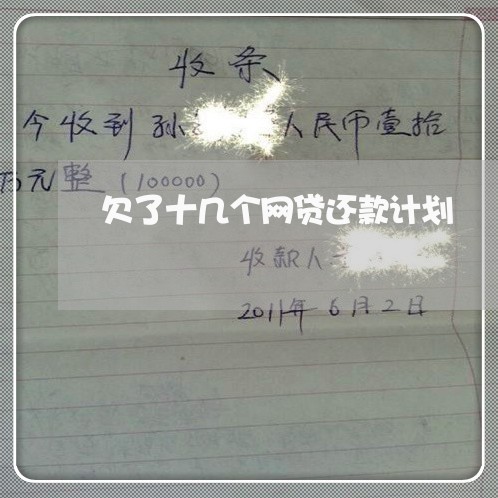 收条
今收到孙 人民币壹拾
万元整(100000)
欠了十几个网贷还款计划
收款人
2011年6月2日